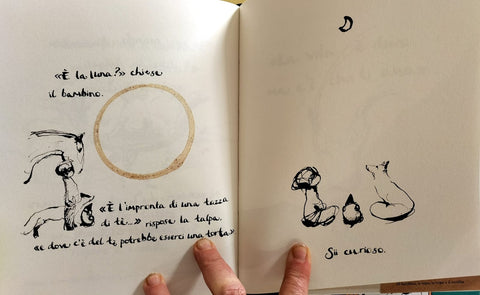 «È la luna?» chiese
il bambino.
«È l'impronta di una tazza
di tè...» rispose la talpa.
«e dove c'è del tè, potrebbe esserci una torta»
Sii curioso.